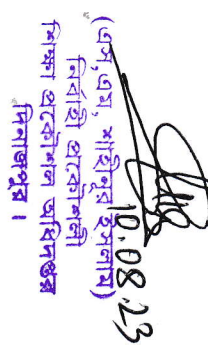 10.08.23
(এস,এম, শাহিনুর ইসলাম)
নির্বাহী প্রকৌশলী
শিক্ষা প্রকৌশল অধিদপ্তর
দিনাজপুর।